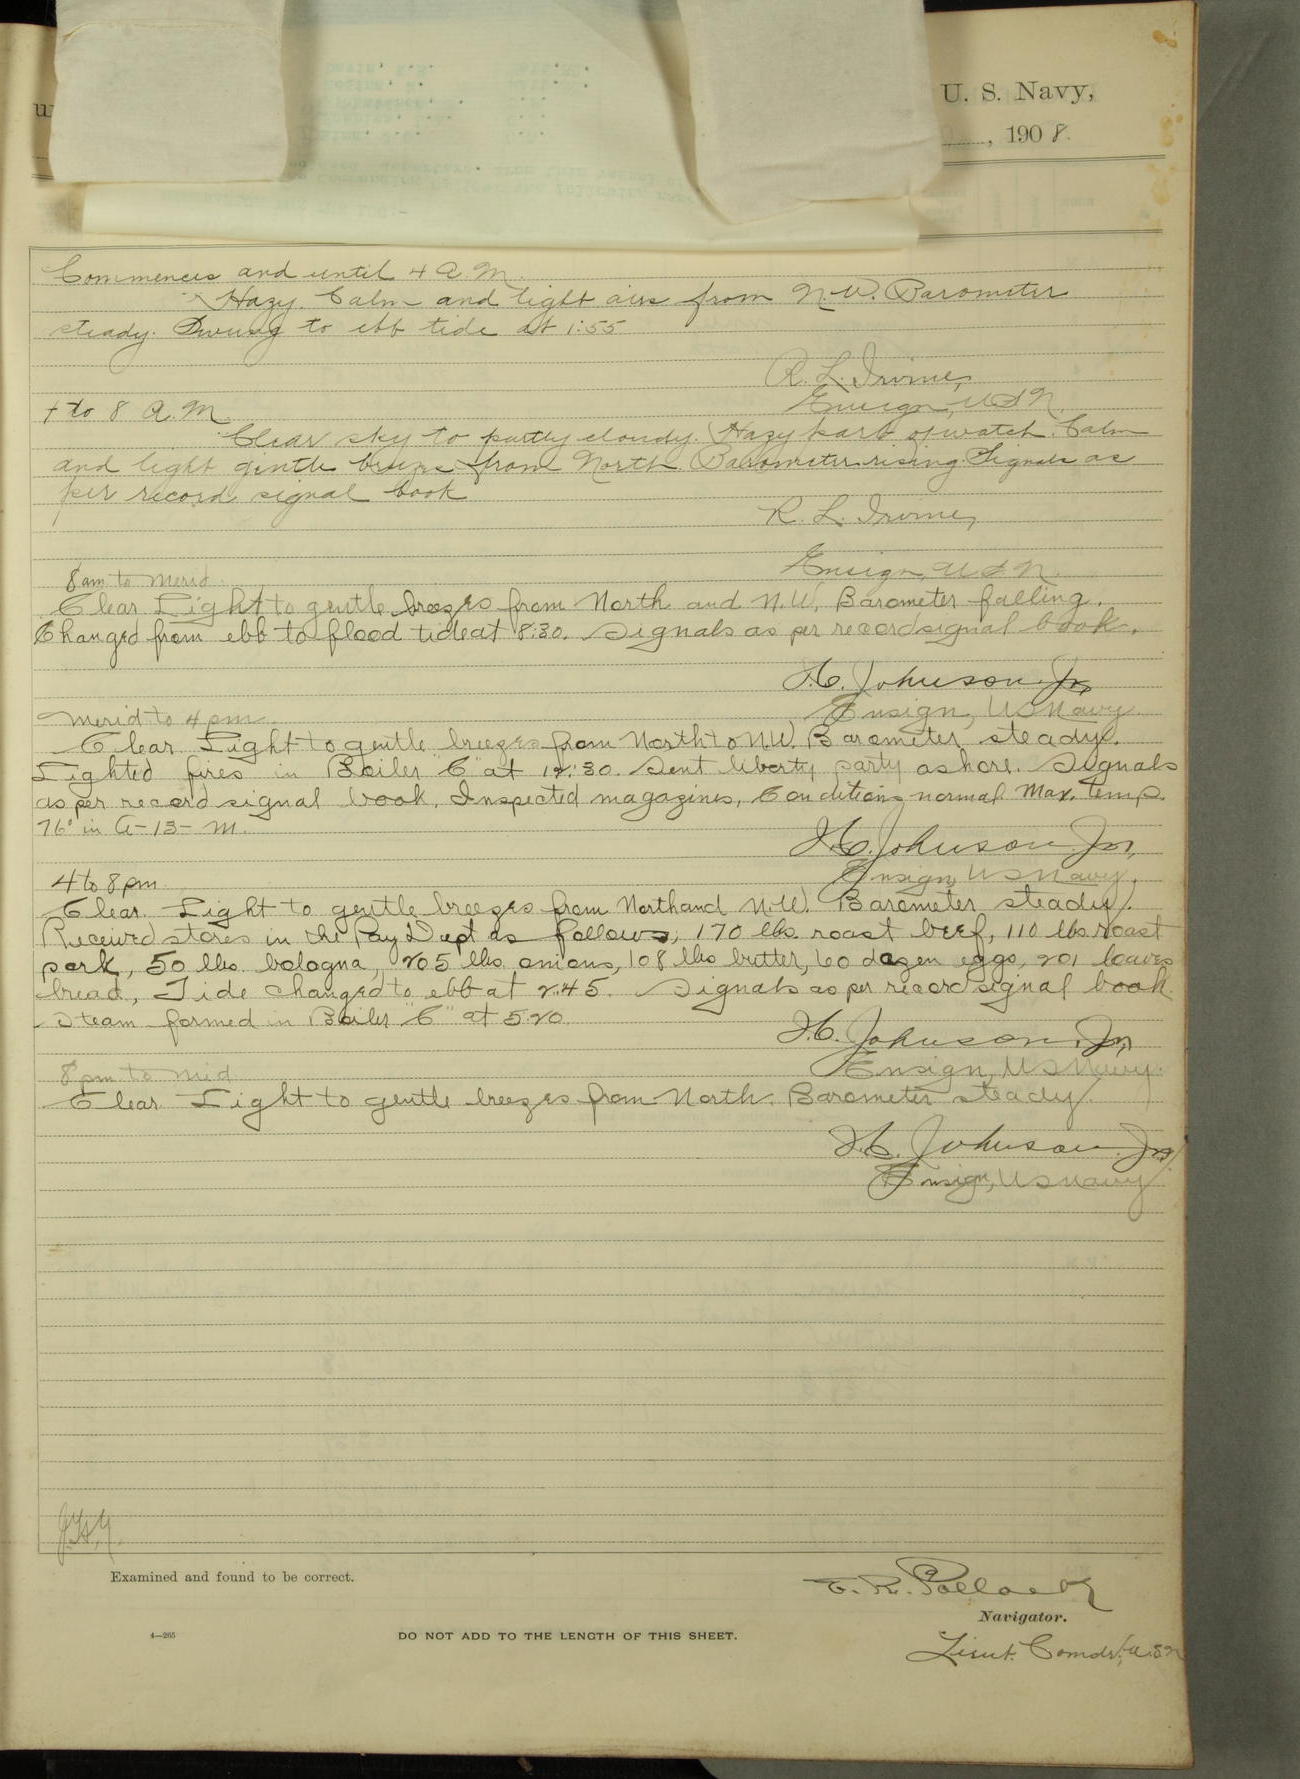 U. S. Navy,
, 1908.
Commences and until 4 A.M.
Hazy. Calm and light airs from N.W. Barometer
steady. Swung to ebb tide at 1:55
R. L. Irvine,
Ensign, U S N.
4 to 8 A.M.
Clear sky to partly cloudy. Hazy part of watch. Calm
and light gentle breeze from North. Barometer rising Signals as
per record signal book
R. L. Irvine,
Ensign, U S N.
8 am to Merid.
Clear. Light to gentle breezes from North and N.W. Barometer falling.
Changed from ebb to flood tide at 8:30. Signals as per record signal book.
Johnson Jr,
Ensign, U S Navy
Merid to 4 pm.
Clear. Light to gentle breezes from North to N.W. Barometer steady.
Lighted fires in Boiler "C" at 12:30. Sent liberty party ashore. Signals
as per record signal book. Inspected magazines, Conditions normal. Max. temp.
76° in A-13-M.
Johnson Jr,
Ensign, U S Navy.
4 to 8 pm
Clear. Light to gentle breezes from North and N.W. Barometer steady.
Received stores in the Pay Dept as follows; 170 lbs. roast beef, 110 lbs. roast
pork, 50 lbs. bologna, 205 lbs. onions, 108 lbs butter, 60 dozen eggs, 201 loaves
bread, Tide changed to ebb at 2:45. Signals as per record signal book.
Steam formed in Boiler "C" at 5:20
Johnson, Jr,
Ensign, U S Navy.
8 pm to Mid
Clear. Light to gentle breezes from North. Barometer steady.
Johnson Jr,
Ensign, U S Navy
Examined and found to be correct.
E. R. Pollock
Navigator.
4—265
DO NOT ADD TO THE LENGTH OF THIS SHEET.
Lieut. Comdr., U.S.N